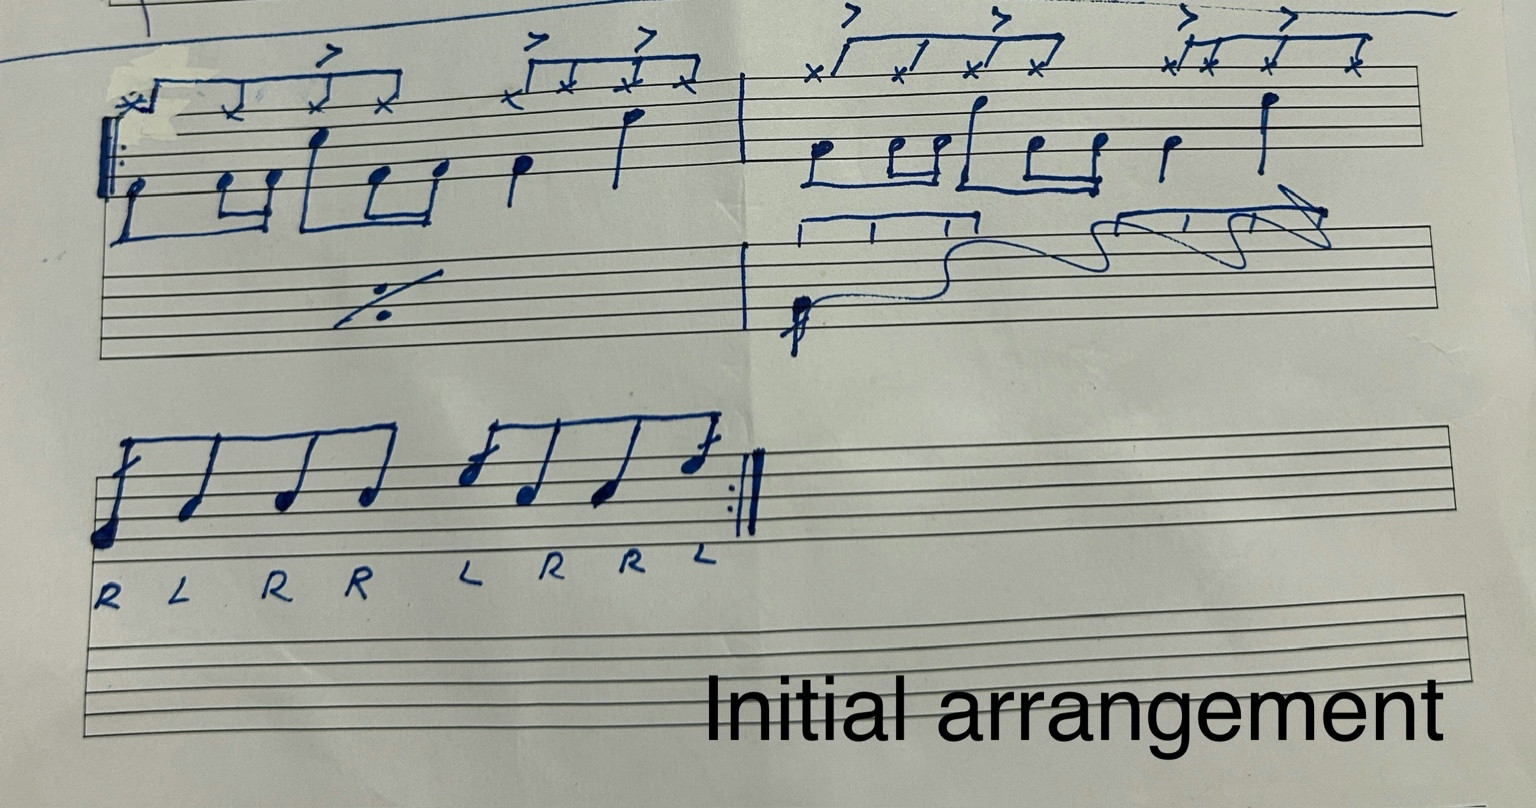 R L R R L R R L
Initial arrangement